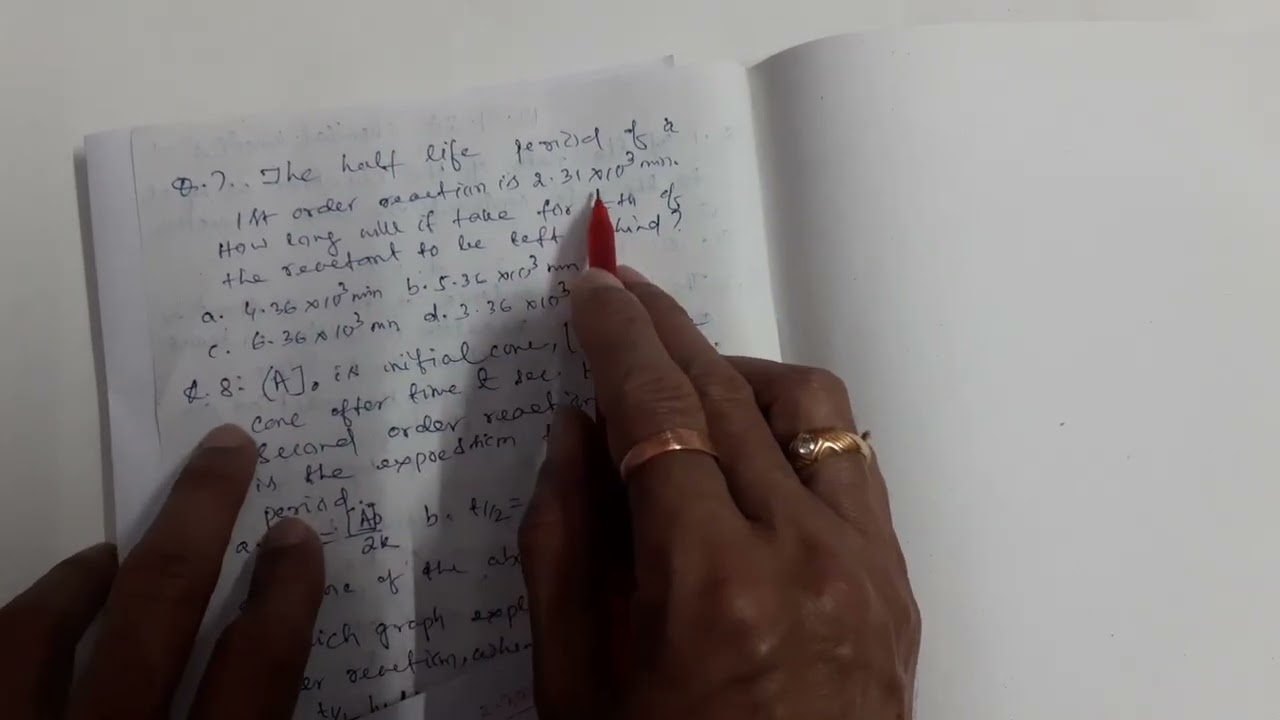 Q.7. The half life period of a
1st order reaction is 2.31 × 10³ min.
How long will it take for th of
the reactant to be left behind?
a. 4.36 × 10³ min b. 5.36 × 10³ min
c. 6.36 × 10³ mn d. 3.36 × 10³
Q.8: [A]₀ is initial conc, [
conc after time t sec.
second order reaction
is the expression
period.
a. = [A]₀/2k b. t1/2 =
of the
ich graph expl
er reaction, when